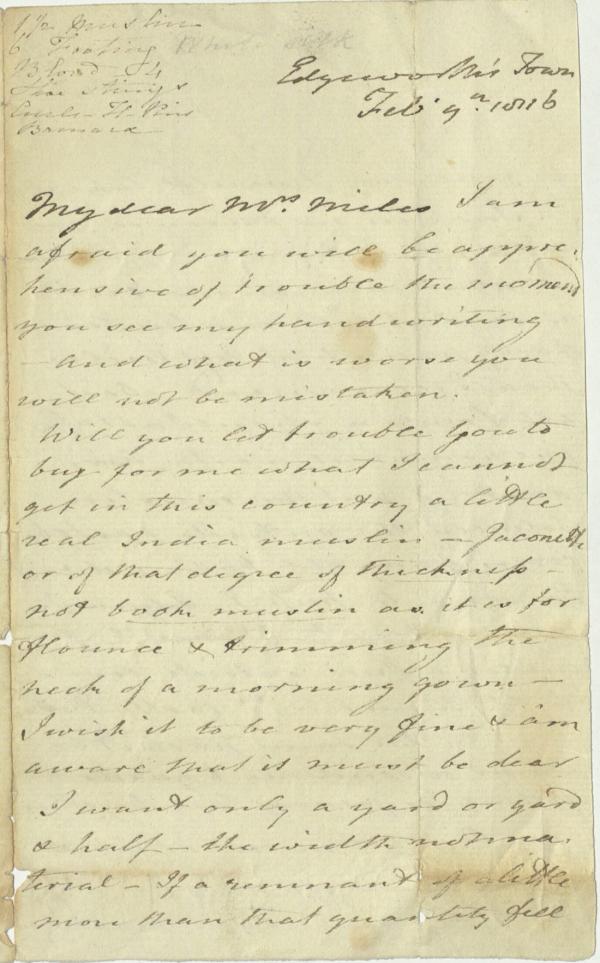 1 1/2 Muslin
6 Footing White
Blond - 4
Shoe Strings
Curls - H Pins
Barnard
Edgeworth's Town
Feb 9th 1816
My dear Mrs. Miles I am
afraid you will be appre-
hensive of trouble the moment
you see my handwriting
- and what is worse you
will not be mistaken.
Will you let trouble you to
buy for me what I cannot
get in this country a little
real India muslin - Jaconette
or of that degree of thickness -
not book muslin as it is for
flounce & trimming the
neck of a morning gown -
I wish it to be very fine & am
aware that it must be dear
I want only a yard or yard
& half - the width not ma-
terial - If a remnant of a little
more than that quantity fell